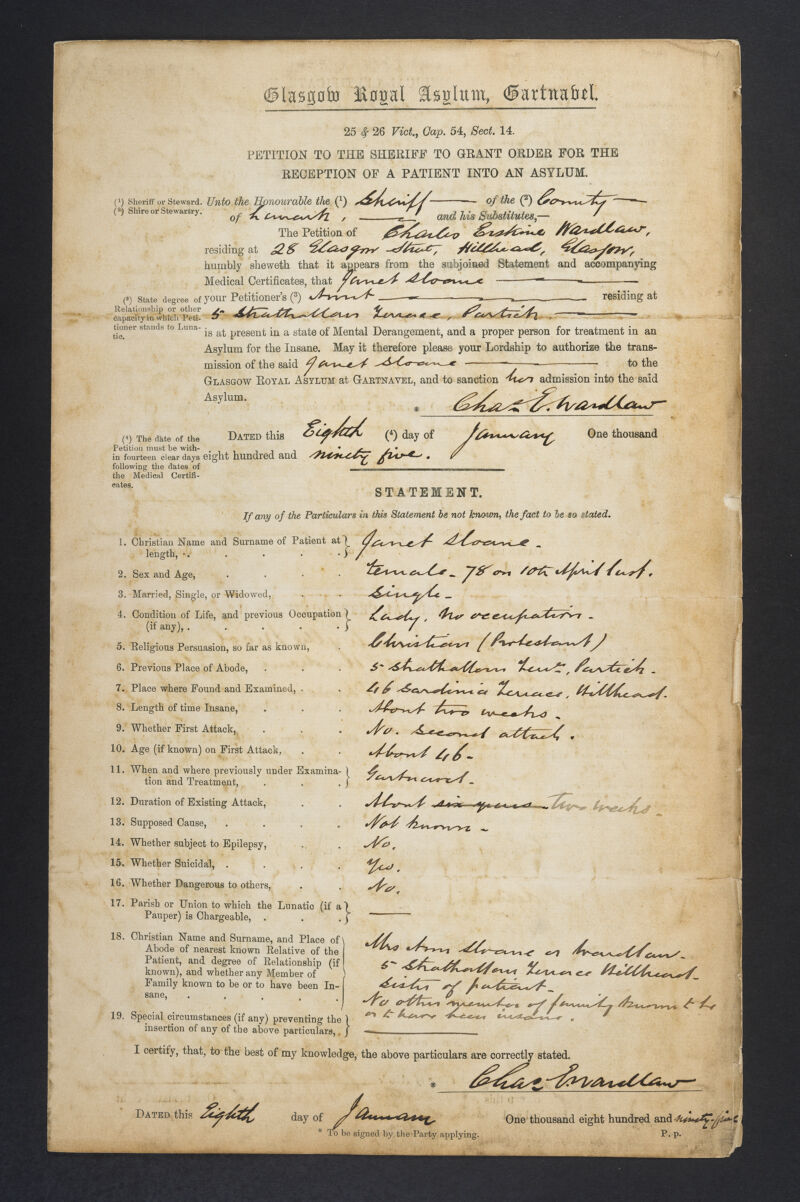 Glasgow Royal Asylum, Gartnabel.
25 & 26 Vict., Cap. 54, Sect. 14.
PETITION TO THE SHERIFF TO GRANT ORDER FOR THE
RECEPTION OF A PATIENT INTO AN ASYLUM.
(¹) Sheriff or Steward.
(²) Shire or Stewartry.
Unto the Honourable the (¹) Sheriff of the (²) County
of Lanark, and his Substitutes,—
The Petition of Charles Erskine Wardlaw,
residing at 28 Glasgow Street, Hillhead, Glasgow,
humbly sheweth that it appears from the subjoined Statement and accompanying
Medical Certificates, that Janet Sloane
(³) State degree of
Relationship or other
capacity in which Peti-
tioner stands to Luna-
tic.
your Petitioner's (³) Aunt residing at
5 Strathallan Terrace, Partick.
is at present in a state of Mental Derangement, and a proper person for treatment in an
Asylum for the Insane. May it therefore please your Lordship to authorize the trans-
mission of the said Janet Sloane to the
GLASGOW ROYAL ASYLUM at GARTNAVEL, and to sanction her admission into the said
Asylum.
* Chas E. Wardlaw
(⁴) The date of the
Petition must be with-
in fourteen clear days
following the dates of
the Medical Certifi-
cates.
DATED this Eighth (⁴) day of January One thousand
eight hundred and ninety five.
STATEMENT.
If any of the Particulars in this Statement be not known, the fact to be so stated.
1. Christian Name and Surname of Patient at
length, Janet Sloane.
2. Sex and Age, female. 78 on 10th April last.
3. Married, Single, or Widowed, Single
4. Condition of Life, and previous Occupation
(if any), Lady, no occupation.
5. Religious Persuasion, so far as known, Christian (Protestant)
6. Previous Place of Abode, 5 Strathallan Terre, Partick.
7. Place where Found and Examined, 46 Sardinia Terrace, Hillhead.
8. Length of time Insane, About two weeks.
9. Whether First Attack, No. Second attack.
10. Age (if known) on First Attack, About 46.
11. When and where previously under Examina-
tion and Treatment, Gartnavel.
12. Duration of Existing Attack, About six years two weeks.
13. Supposed Cause, Not known.
14. Whether subject to Epilepsy, No.
15. Whether Suicidal, Yes.
16. Whether Dangerous to others, No.
17. Parish or Union to which the Lunatic (if a
Pauper) is Chargeable,
18. Christian Name and Surname, and Place of
Abode of nearest known Relative of the
Patient, and degree of Relationship (if
known), and whether any Member of
Family known to be or to have been In-
sane,
Mrs Ann Sloane or Wardlaw
5 Strathallan Terrace Hillhead
Sister of patient.
No other member of family known to be
or to have been insane.
19. Special circumstances (if any) preventing the
insertion of any of the above particulars,
I certify, that, to the best of my knowledge, the above particulars are correctly stated.
* Chas E Wardlaw
DATED this Eighth day of January One thousand eight hundred and ninety-five
* To be signed by the Party applying.
P. p.